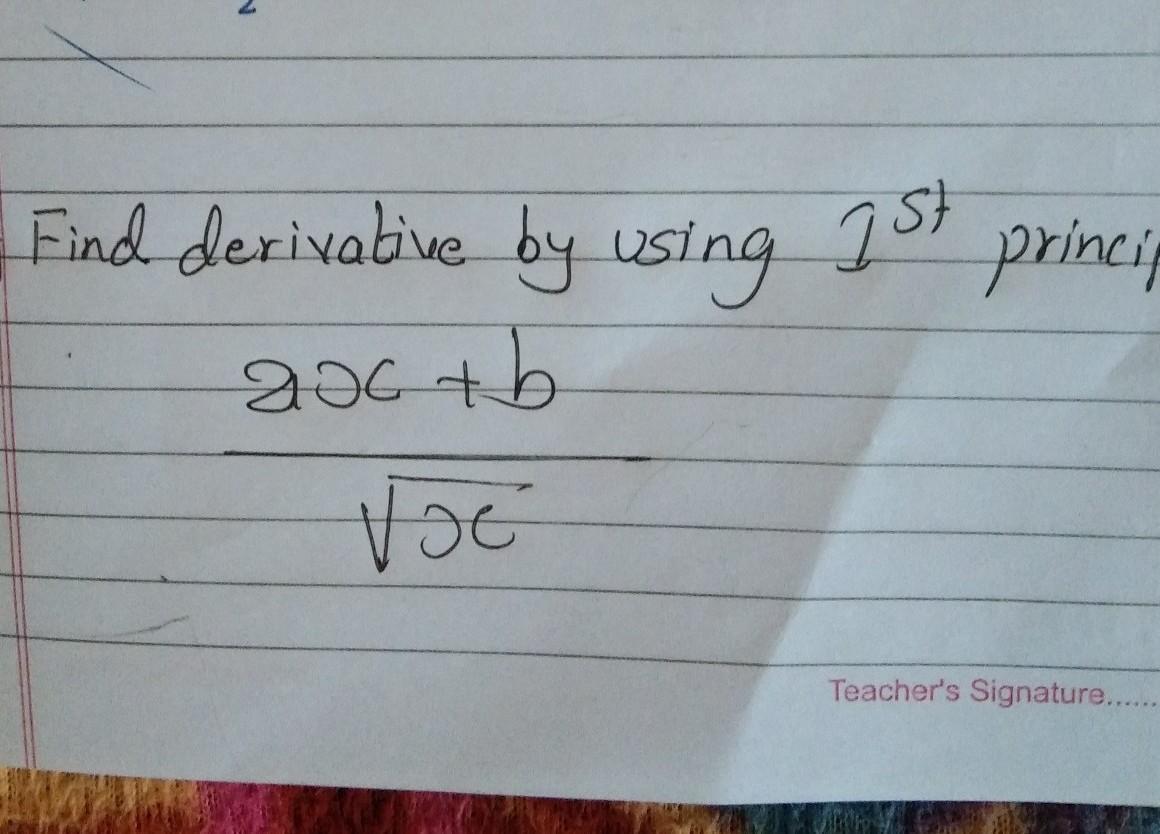 2
Find derivative by using 1st princip
ax + b
√x
Teacher's Signature......